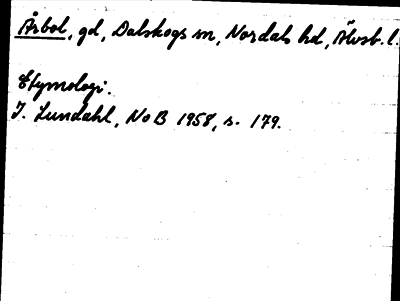 Årbol, gd, Dalskogs sn, Nordals hd, Älvsb. l.
Etymologi.
I. Lundahl, NoB 1958, s. 179.